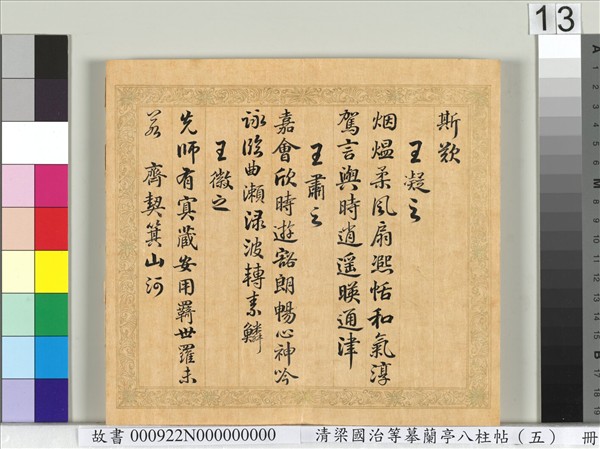 斯歎
王凝之
烟熅柔風扇熙恬和氣淳
駕言興時遊逍遥暎通津
王肅之
嘉會欣時遊豁朗暢心神吟
詠臨曲瀬渌波轉素鱗
王徽之
先師有冥藏安用羇世羅未
若齊契箕山河
13
故書 000922N000000000 清梁國治等摹蘭亭八柱帖（五） 冊